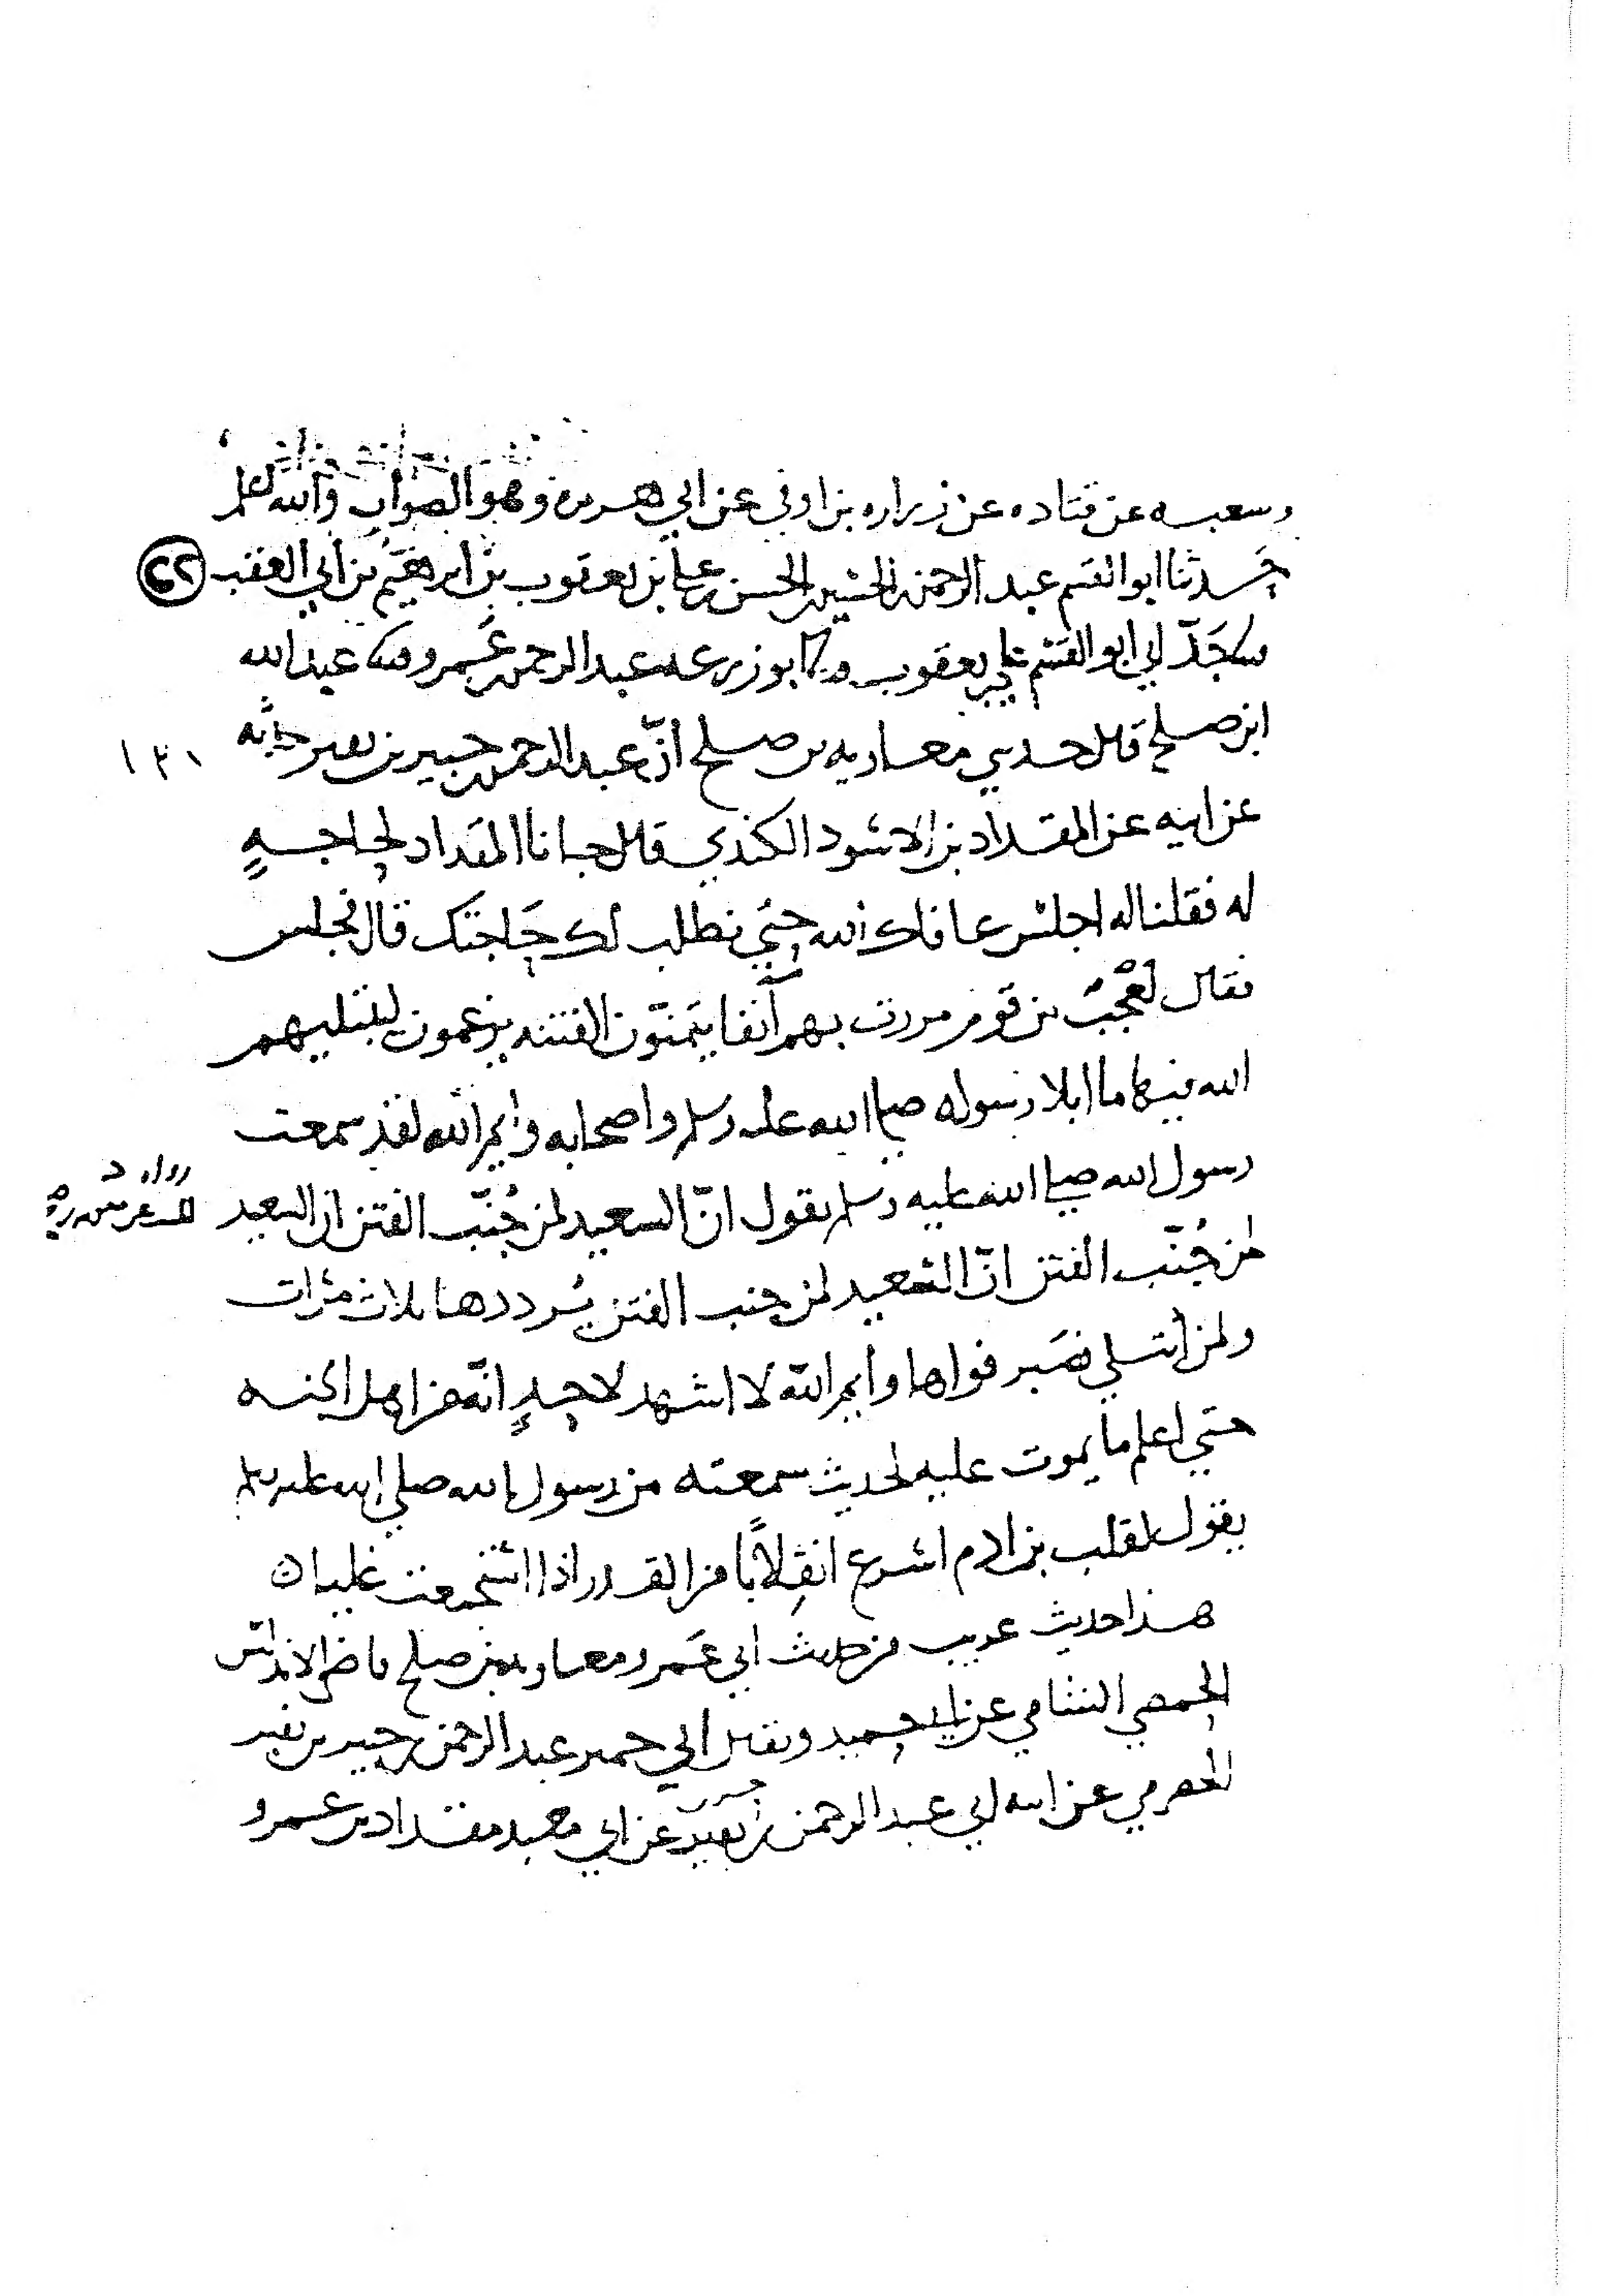 وسعبه عن قتاده عن زراره بن اوفى عن ابي هريره وهو الصواب والله اعلم
حدثنا ابو القسم عبد الرحمن بن الحسين بن الحسن بن علي بن يعقوب بن ابرهيم بن ابي العقب ٤٢
جدّ ابي ابو القسم علي بن يعقوب ابو زرعه عبد الرحمن بن عمرو عبد الله
ابن صلح قال حدثني معاويه بن صلح انّ عبد الرحمن بن جبير بن نفير حدثه
١٣١
عن ابيه عن المقداد بن الاسود الكندي قال جانا المقداد لحاجةٍ
له فقلنا له اجلس عافاك الله حتي نطلب لك حاجتك قال فجلس
فقال لعجبٌ من قوم مررت بهم آنفا يتمنّون الفتنه يزعمون ليبتليهم
الله فيها ما ابلا رسوله صلى الله عليه وسلم واصحابه وايم الله لقد سمعت
رسول الله صلى الله عليه وسلم يقول انّ السعيد لمن جُنّب الفتن ان السعيد
رواه د
لمن جُنّب الفتن انّ السعيد لمن جنب الفتن يُرددها ثلاث مرات
ولمن ابتلي فصَبر فواها وايم الله لا اشهد لاحدٍ انّه من اهل الجنه
حتي اعلم ما يموت عليه لحديث سمعته من رسول الله صلي الله عليه وسلم
يقول لقلب بن ادم اسرع انقلابًا من القدر اذا استجمعت غليان
هذا حديث غريب من حديث ابي عَمرو معاويه بن صلح قاضي الاندلس
الحمصي الشامي عن ابي حميد ويقال ابي حمير عبد الرحمن بن جبير بن نفير
الحضرمي عن ابيه ابي عبد الرحمن بن نفير عن ابي معبد مقداد بن عمرو